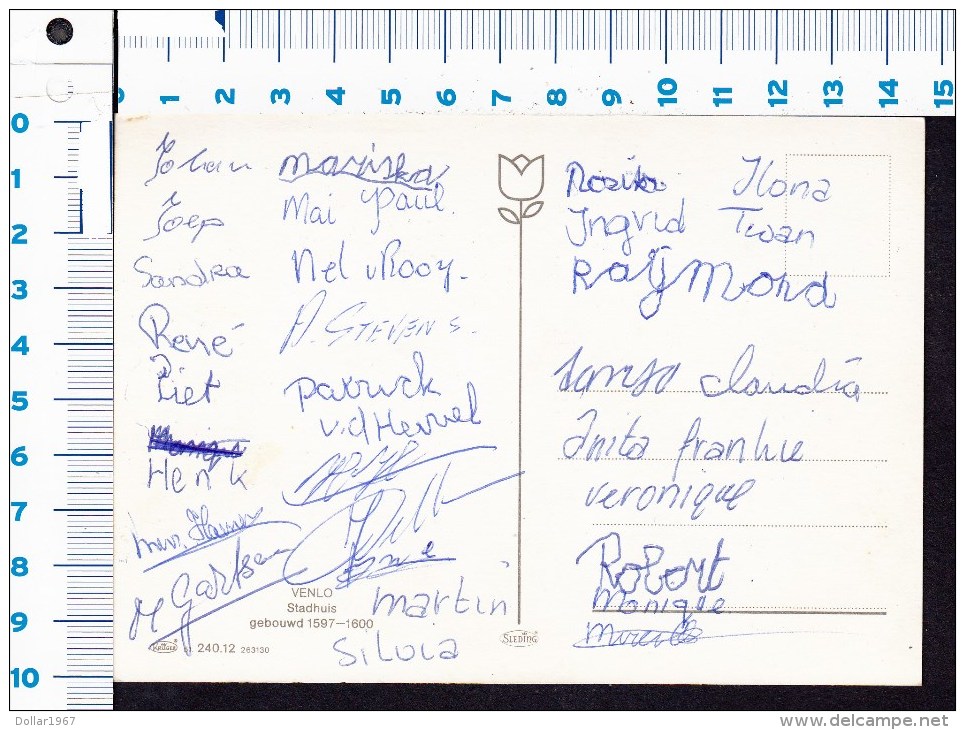 0 1 2 3 4 5 6 7 8 9 10 11 12 13 14 15
0
1
2
3
4
5
6
7
8
9
10
Johan
Joep
Sandra
René
Piet
Henk
Mariska
Mai Paul.
Nel v Rooy.
A. STEVENS.
Patrick
v.d Hervel
martin
Silvia
VENLO
Stadhuis
gebouwd 1597–1600
KRÜGER 240.12 263130
SLEDING
Rosita Ilona
Ingrid Twan
RAYMOND
Claudia
Anita Frankie
veronique
Robert
Monique
Dollar1967
www.delcampe.net